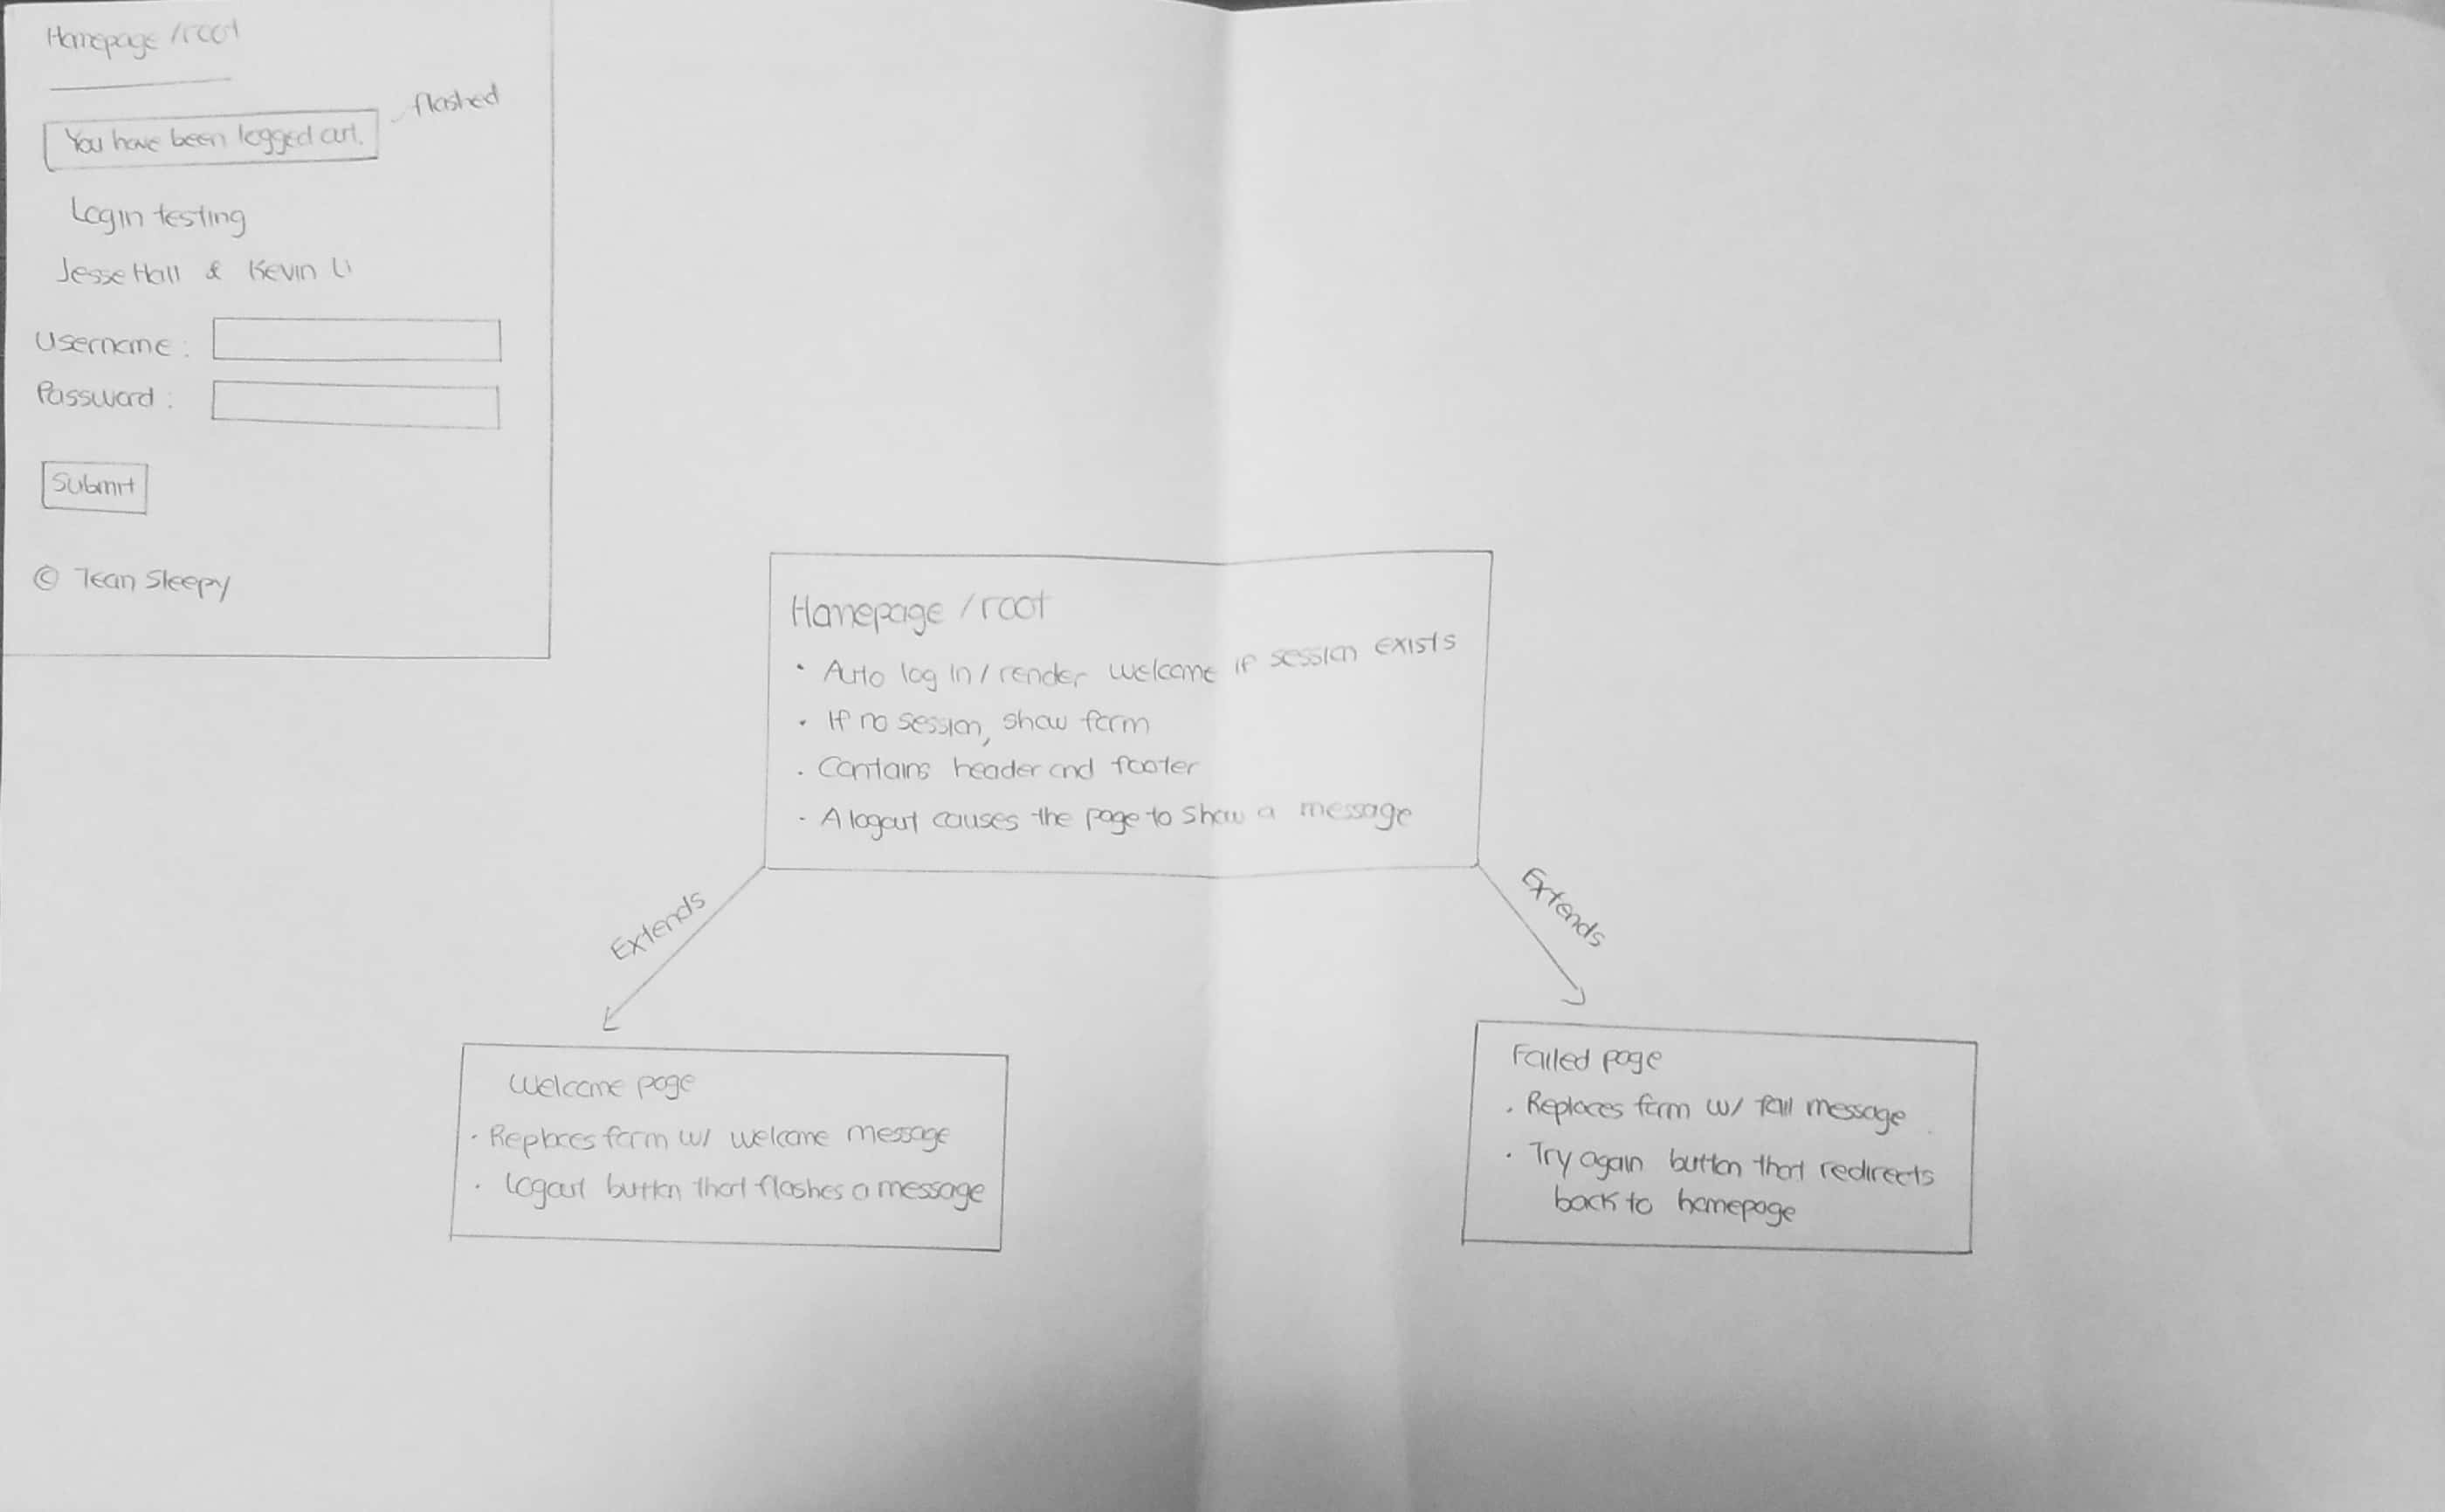 Homepage /root
flashed
You have been logged out.
Login testing
Jesse Hall & Kevin Li
Username:
Password:
Submit
© Team Sleepy
Homepage /root
· Auto log in / render welcome if session exists
· If no session, show form
· Contains header and footer
- A logout causes the page to show a message
Extends
Extends
Welcome page
· Replaces form w/ welcome message
· Logout button that flashes a message
Failed page
· Replaces form w/ fail message
· Try again button that redirects
back to homepage